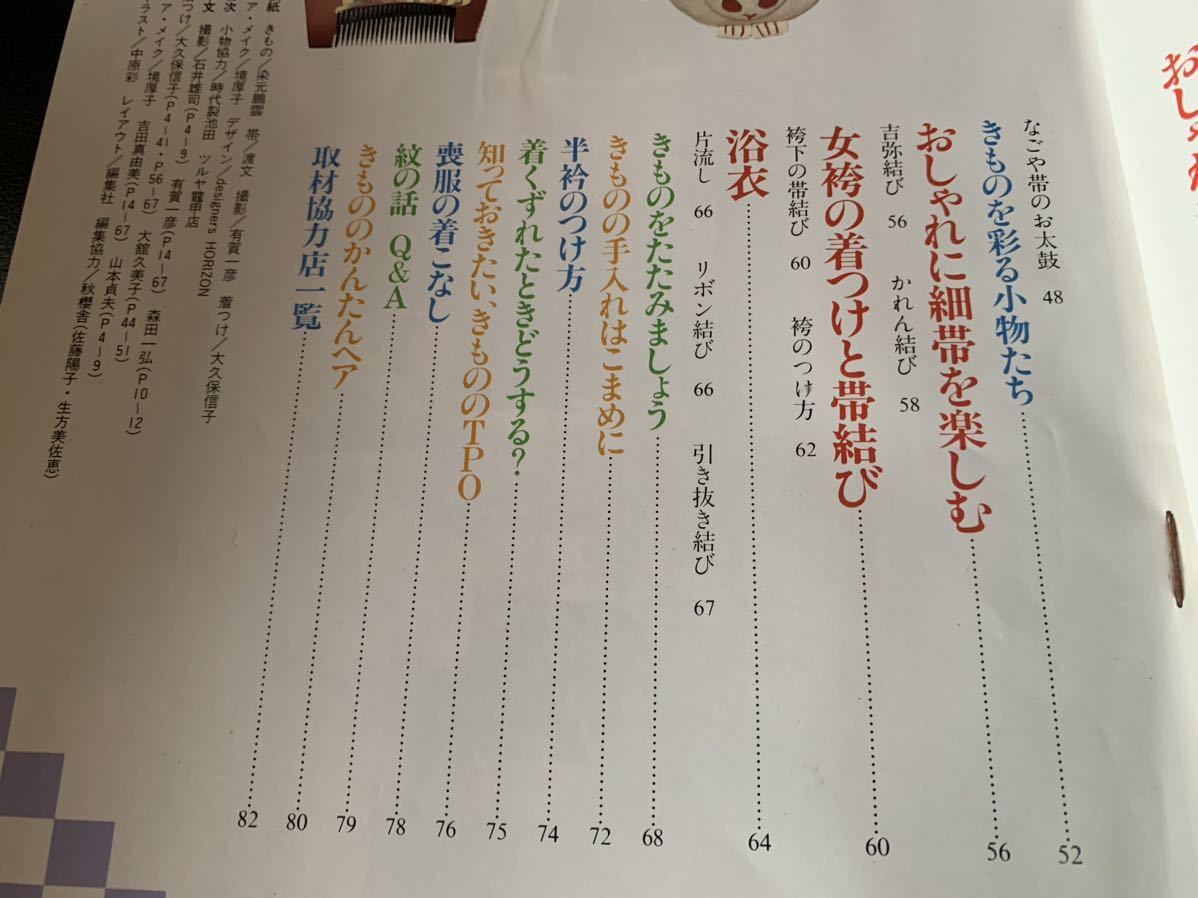 おしゃれ
なごや帯のお太鼓 48
きものを彩る小物たち 52
おしゃれに細帯を楽しむ 56
吉弥結び 56 かれん結び 58
女袴の着つけと帯結び 60
袴下の帯結び 60 袴のつけ方 62
浴衣 64
片流し 66 リボン結び 66 引き抜き結び 67
きものをたたみましょう 68
きものの手入れはこまめに 72
半衿のつけ方 74
着くずれたときどうする? 75
知っておきたい、きもののTPO 76
喪服の着こなし 78
紋の話 Q&A 79
きもののかんたんヘア 80
取材協力店一覧 82
紙 きもの/染元鵬雲 帯/渡文 撮影/有賀一彦 着つけ/大久保信子
ア・メイク/境厚子 デザイン/designers HORIZON
次 小物協力/時代裂池田 ツルヤ鼈甲店
文 撮影/石井雄司(P4〜9) 有賀一彦(P14〜67) 森田一弘(P10〜12)
つけ/大久保信子(P4〜41・P56〜67) 大舘久美子(P44〜51)
ア・メイク/境厚子 吉田真由美(P14〜67) 山本貞夫(P4〜9)
ラスト/中原彩 レイアウト/編集社 編集協力/秋櫻舎(佐藤陽子・生方美佐恵)